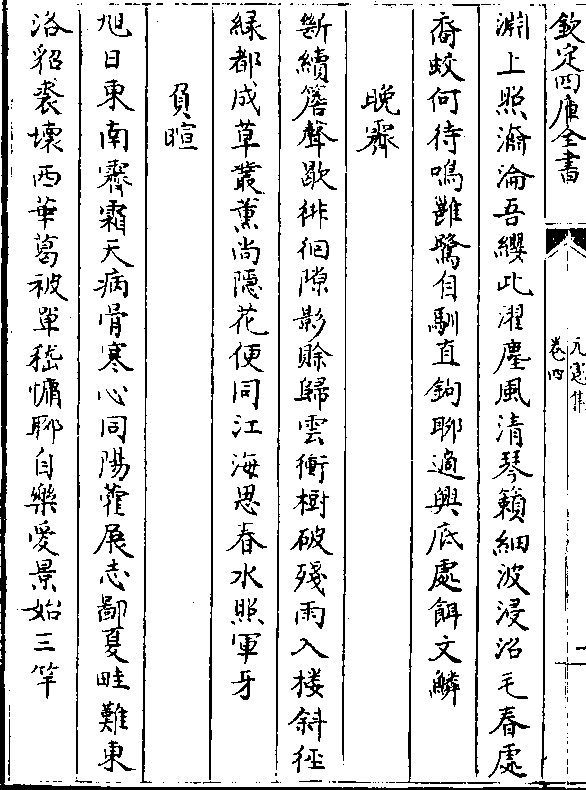 欽定四庫全書
元憲集
卷四
淵上照瀹淪吾纓此濯塵風清琴籟細波浸沼毛春處
喬蛟何待鳴雞鶩自馴直鉤聊適興底處餌文鱗
晚霽
斷續簷聲歇徘徊隙影賒歸雲衝樹破殘雨入樓斜徑
緑都成草叢薰尚隠花便同江海思春水照軍牙
負暄
旭日東南霽霜天病骨寒心同陽藿展志鄙夏畦難東
洛貂裘壊西華葛被單嵇慵聊自樂愛景始三竿